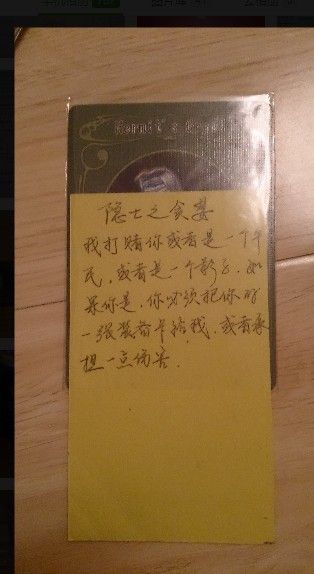 隐士之贪婪
我打赌你或者是一个平
民，或者是一个影子，如
果你是，你必须把你的
一张装备卡给我，或者承
担一点伤害.